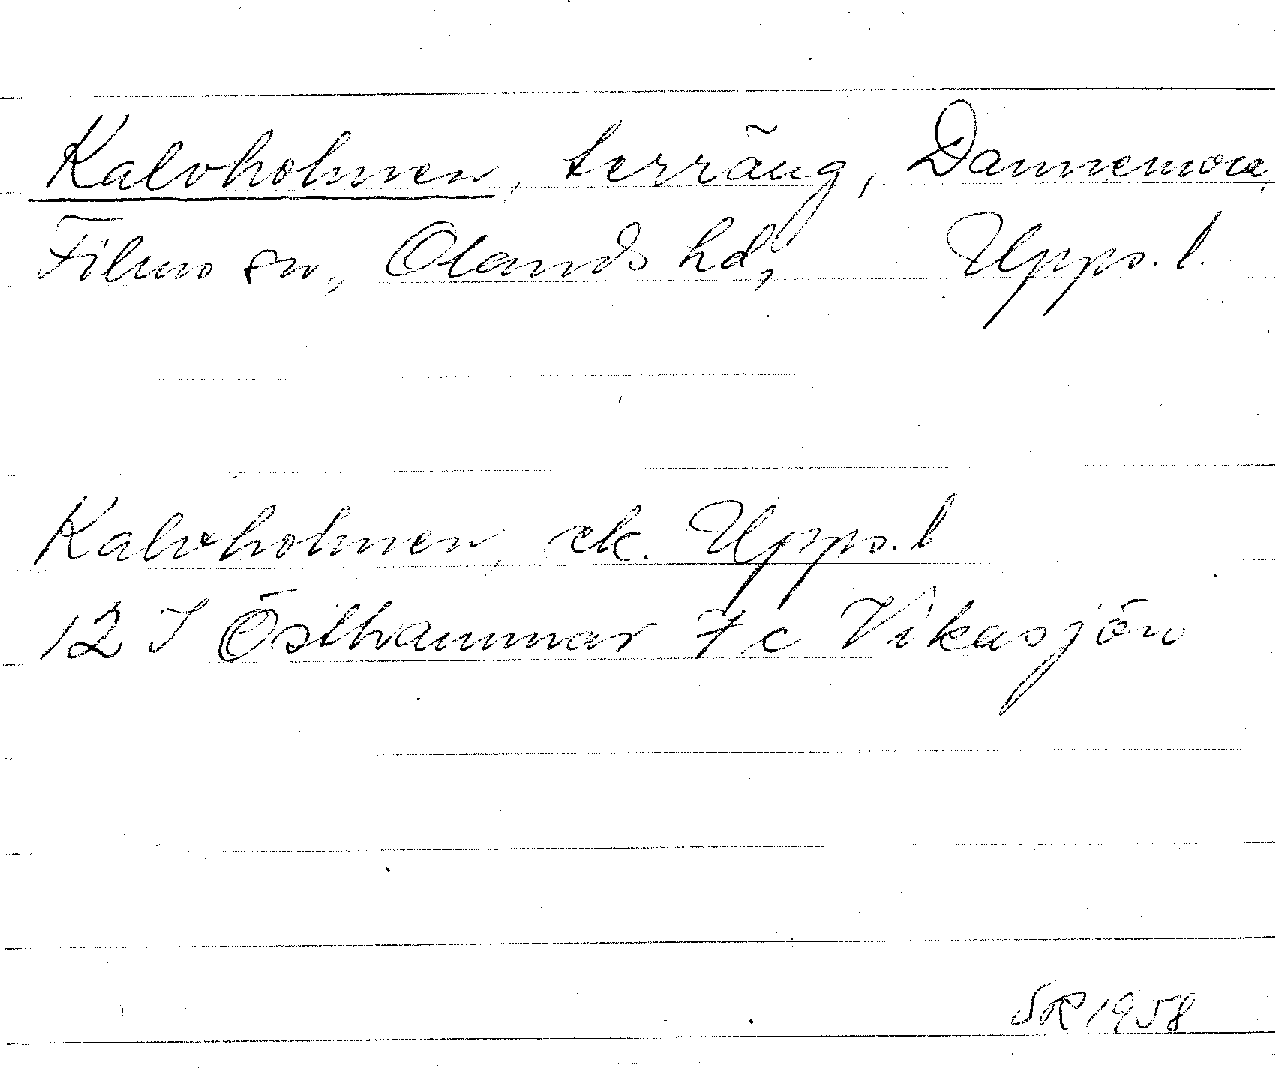 Kalvholmen, terräng, Dannemora,
Films sn, Olands hd, Upps. l.
Kalvholmen, ek. Upps. l
12 I Östhammar 7 c Vikasjön
SR 1958